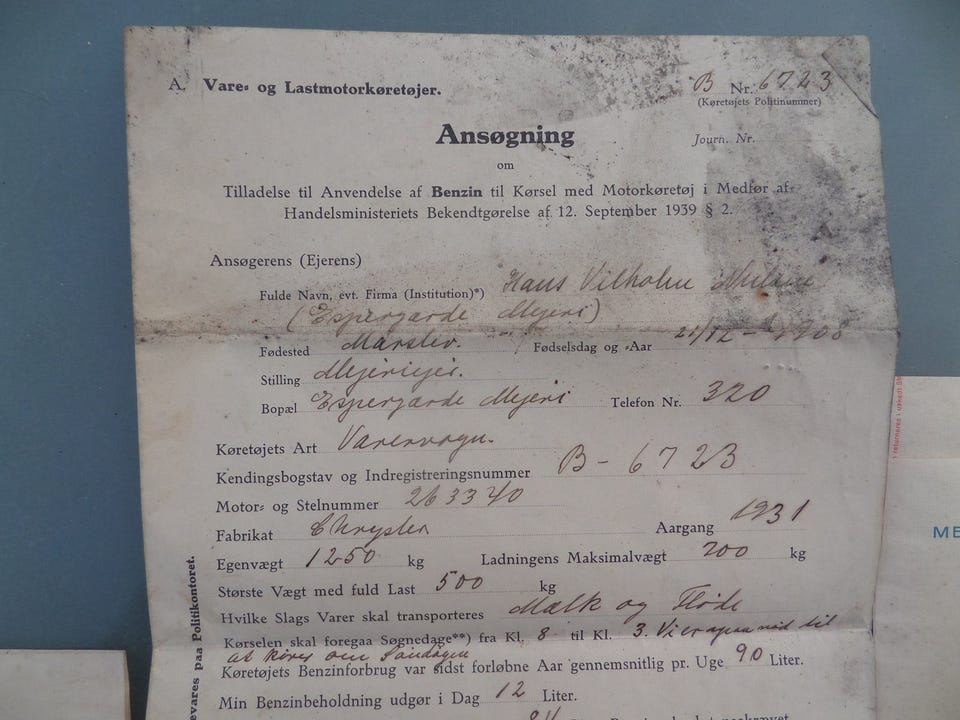 A. Vare- og Lastmotorkøretøjer.
B Nr. 6723
(Køretøjets Politinummer)
Ansøgning
Journ. Nr.
om
Tilladelse til Anvendelse af Benzin til Kørsel med Motorkøretøj i Medfør af
Handelsministeriets Bekendtgørelse af 12. September 1939 § 2.
Ansøgerens (Ejerens)
Fulde Navn, evt. Firma (Institution)*) Hans Vilhelm Nielsen
(Espergærde Mejeri)
Fødested Marslev. Fødselsdag og -Aar 21/12 - 1908
Stilling Mejeriejer.
Bopæl Espergærde Mejeri Telefon Nr. 320
Køretøjets Art Varevogn.
Kendingsbogstav og Indregistreringsnummer B - 6723
Motor- og Stelnummer 263340
Fabrikat Chrysler Aargang 1931
Egenvægt 1250 kg Ladningens Maksimalvægt 700 kg
Største Vægt med fuld Last 500 kg
Hvilke Slags Varer skal transporteres Mælk og Fløde
Kørselen skal foregaa Søgnedage**) fra Kl. 8 til Kl. 3. Vi er ogsaa nød til
at køre om Søndagen
Køretøjets Benzinforbrug var sidst forløbne Aar gennemsnitlig pr. Uge 90 Liter.
Min Benzinbeholdning udgør i Dag 12 Liter.
evares paa Politikontoret.
ME